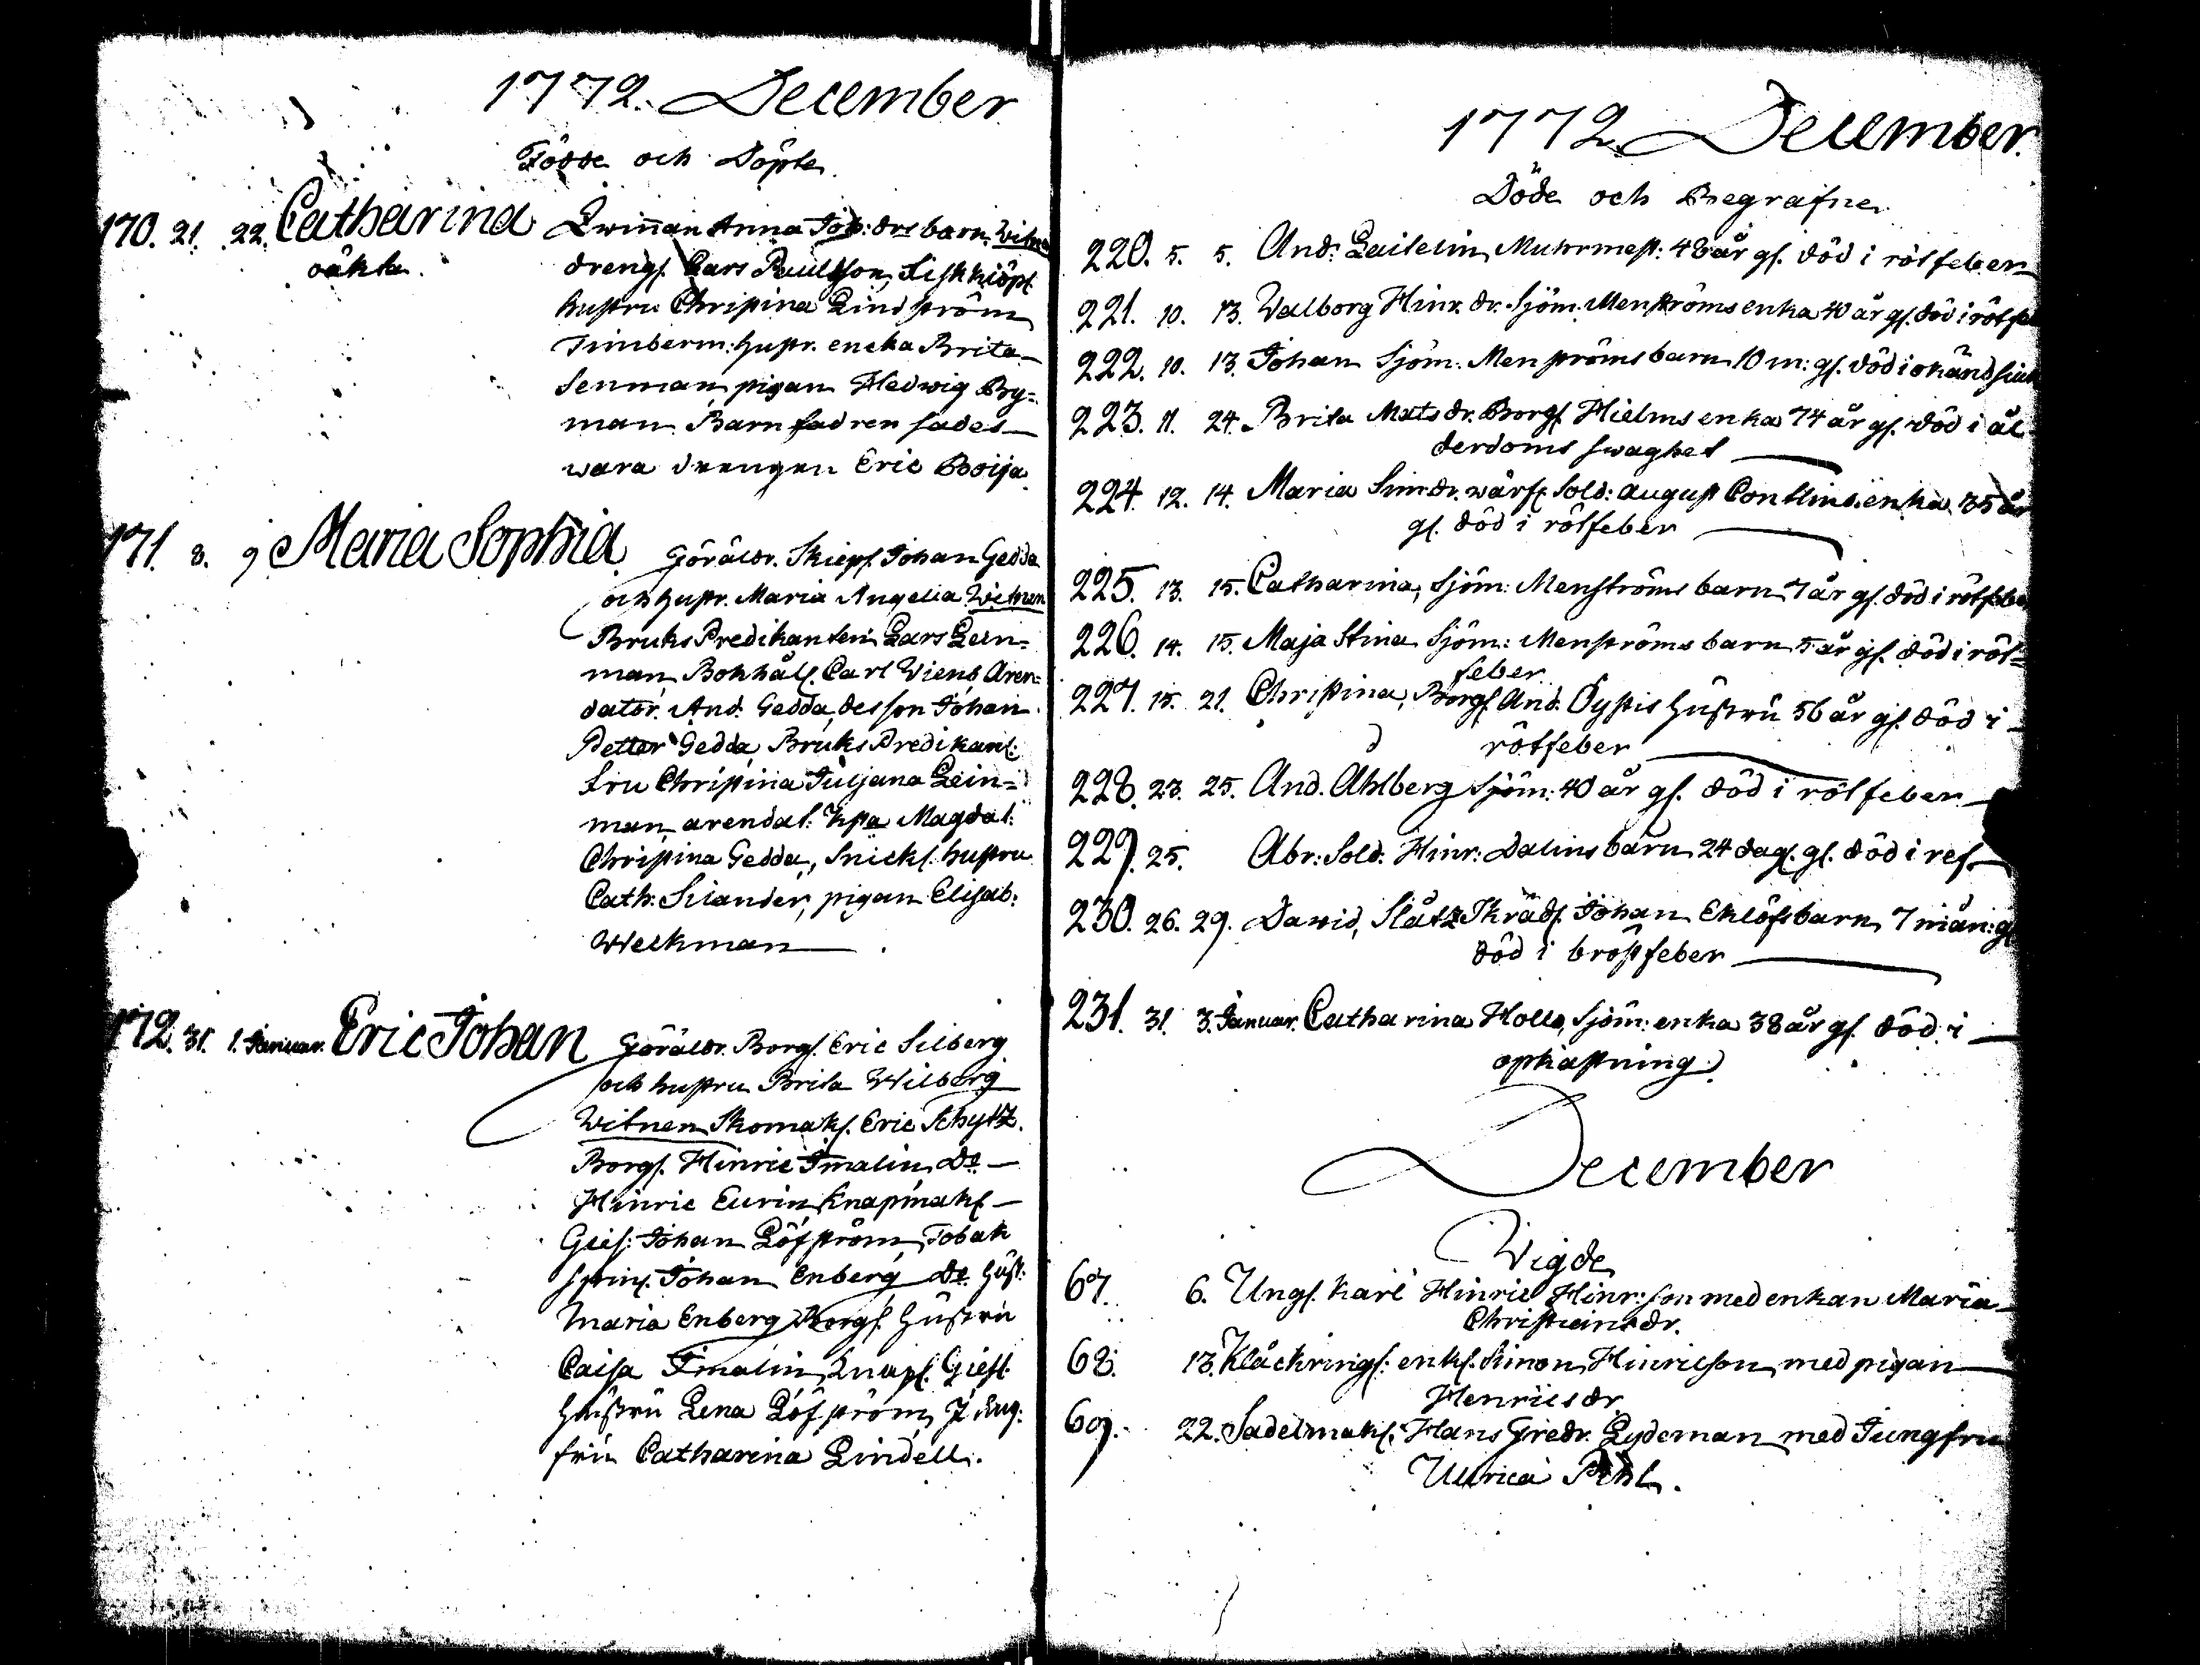 1772. December
Födde och Döpte
170. 21. 22. Catharina Qwinnan Anna Joh: drs barn. Witnen
oäkta. drengs. Lars Paulsson, Fiskkiöps.
hustru Christina Lindström
Timberm: hustr. encka Brita
Senman pigan Hedwig By=
man. Barnfadren sades
wara drengen Eric Boija
171. 8. 9 Maria Sophia Föräldr. Skieps. Johan Gedda
och hustr. Maria Angelia Witnen
Bruks Predikanten Lars Lein=
man Bokhåls. Carl Wiens Aren=
dator. And. Gedda, des son Johan
Petter Gedda, Bruks Predikant:
fru Christina Juljana Lein=
man arendat: Magdal:
Christina Gedda, Snicks. hustru
Cath: Silander, pigan Elisab:
Welkman
172. 31. 1. Januar. Eric Johan Föräldr. Borgs. Eric Silberg
och hustru Brita Wilberg
Witnen Skomaks. Eric Schytz.
Borgs. Hinric Imalin Do
Hinric Eurin Knapmaks
Gies: Johan Löfström Tobak
spins. Johan Enberg Do hust:
Maria Enberg Borgs. hustru
Caisa Imalin, Knaps. Gies.
hustru Lena Löfström Jung:
fru Catharina Lindell.
1772 December.
Döde och Begrafne
220. 5. 5. And: Laitelin Muhrmest: 48 år gl. död i rötfeber
221. 10. 13. Walborg Hinr. dr. Sjöm: Menströms enka 40 år gl. död i rötfeb
222. 10. 13. Johan Sjöm: Menströms barn 10 m: gl. död i okänd siuk
223. 11. 24. Brita Mats dr. Borgs. Hielms enka 74 år gl. död i ål
derdoms swaghet
224. 12. 14. Maria Sim dr. wärf. Sold: August Contlins enka 35 år
gl. död i rötfeber
225. 13. 15. Catharina, Sjöm: Menströms barn 7 år gl. död i rötfeber
226. 14. 15. Maja Stina Sjöm: Menströms barn 5 år gl. död i röt=
feber
227. 15. 21. Christina, Borgs. And. Öystis hustru 56 år gl. död i
rötfeber
228. 23. 25. And. Ahlberg Sjöm: 40 år gl. död i rötfeber
229. 25. Abr: Sold: Hinr: Dalins barn 24 dag. gl. död i ref
230. 26. 29. David, Slåtz Skräds. Johan Eklöfs barn 7 mån: gl
död i bröstfeber
231. 31. 3. Januar. Catharina Hollo, Sjöm: enka 38 år gl. död i
opkastning
December
Wigde
67. 6. Ungs. karl Hinric Hinr: son med enkan Maria
Christians dr.
68. 13. Klåckrings: enks. Simon Hinricson med pigan
Henrics dr
69. 22. Sadelmaks. Hans Fredr. Lydeman med Jungfru
Ulrica Pihl.